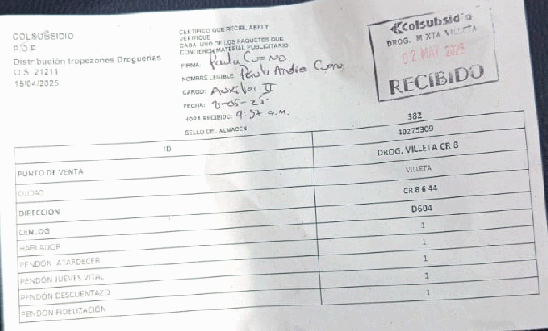 COLSUBSIDIO
P.O.P
Distribución tropezones Droguerías
O.S. 21211
15/04/2025
CERTIFICO QUE RECIBI, ABRI Y
VERIFIQUE
CADA UNO DE LOS PAQUETES QUE
CONTIENE MATERIAL PUBLICITARIO
FIRMA: Paula Cuervo
NOMBRE LEGIBLE: Paula Andrea
CARGO: Auxiliar II
FECHA:
HORA RECIBIDO: 9:57 a.m.
SELLO DEL ALMACEN
Colsubsidio
DROG. MIXTA VILLETA
02 MAY 2025
RECIBIDO
ID 382
PUNTO DE VENTA DROG. VILLETA CR 8
CIUDAD VILLETA
DIRECCION CR 8 6 44
CENLOG D604
HABLADOR 1
PENDÓN ATARDECER 1
PENDÓN JUEVES VITAL 1
PENDÓN DESCUENTAZO
PENDÓN FIDELIZACIÓN 1